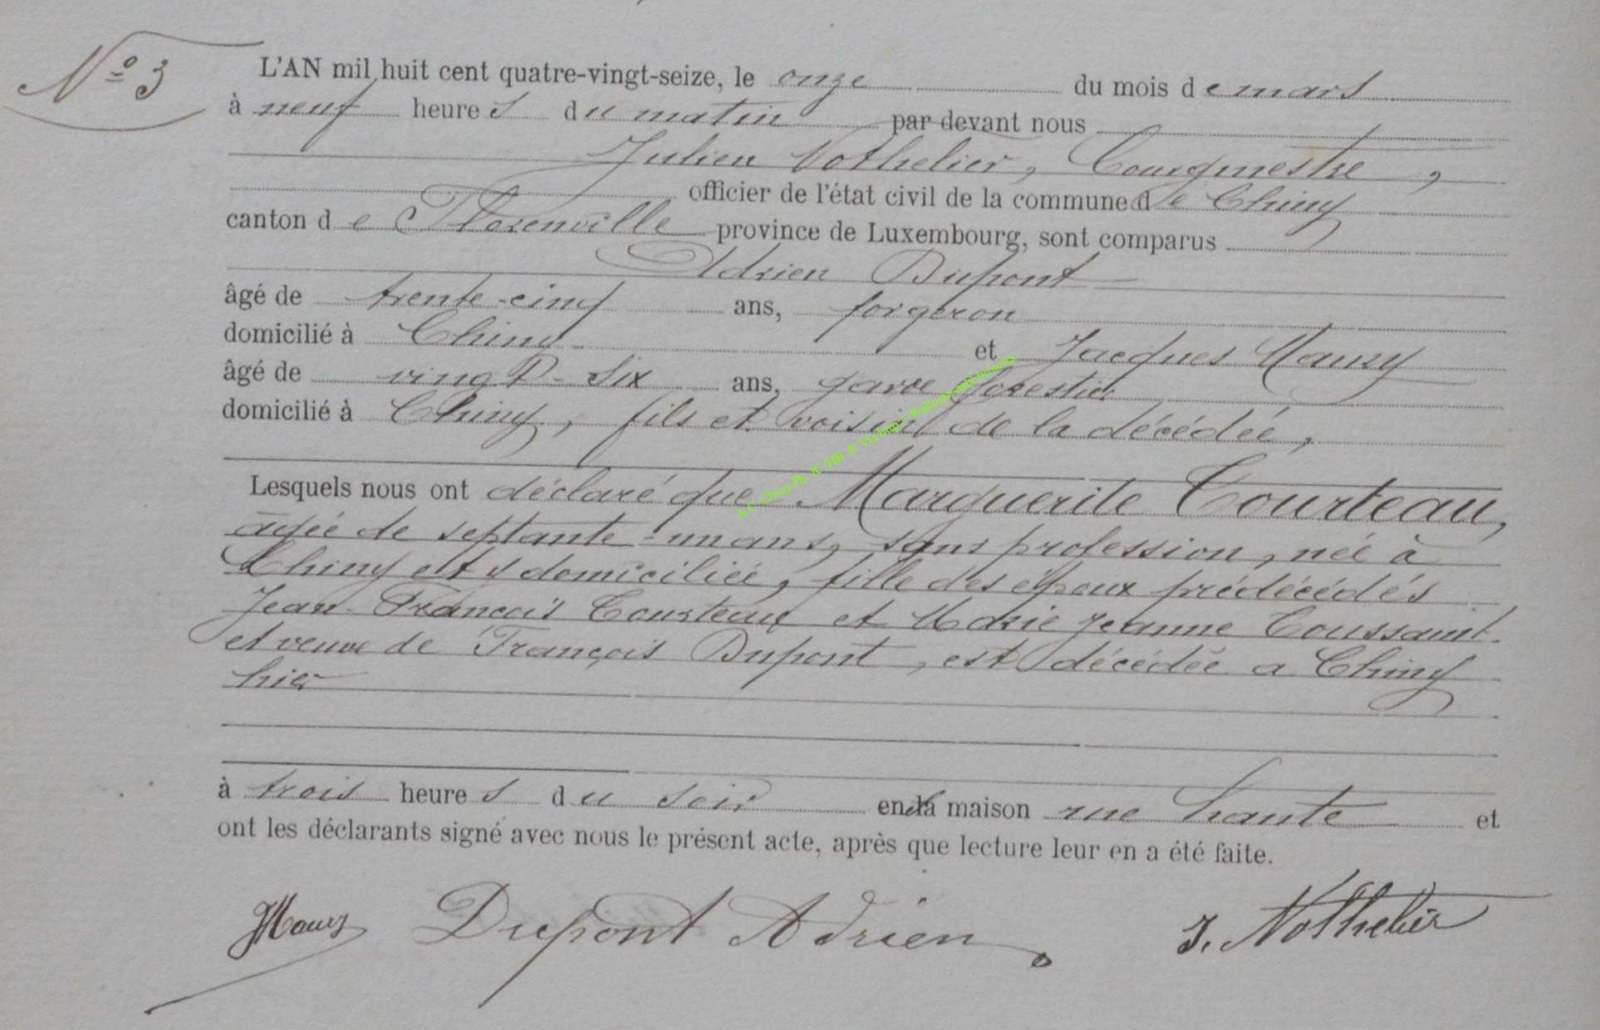 N° 3
L'AN mil huit cent quatre-vingt-seize, le onze du mois de mars
à neuf heures du matin par devant nous
Julien Nothelier, Bourgmestre,
officier de l'état civil de la commune de Chiny
canton de Florenville province de Luxembourg, sont comparus
Adrien Dupont
âgé de trente-cinq ans, forgeron
domicilié à Chiny et Jacques Maury
âgé de vingt-six ans, garde forestier
domicilié à Chiny, fils et voisin de la décédée,
Lesquels nous ont déclaré que Marguerite Courteau,
agée de septante-un ans, sans profession, née à
Chiny et y domiciliée, fille des époux prédécédés
Jean-François Courteau et Marie Jeanne Toussaint
et veuve de François Dupont, est décédée a Chiny
hier
à trois heures du soir en la maison rue haute et
ont les déclarants signé avec nous le présent acte, après que lecture leur en a été faite.
JMaury Dupont Adrien J. Nothelier